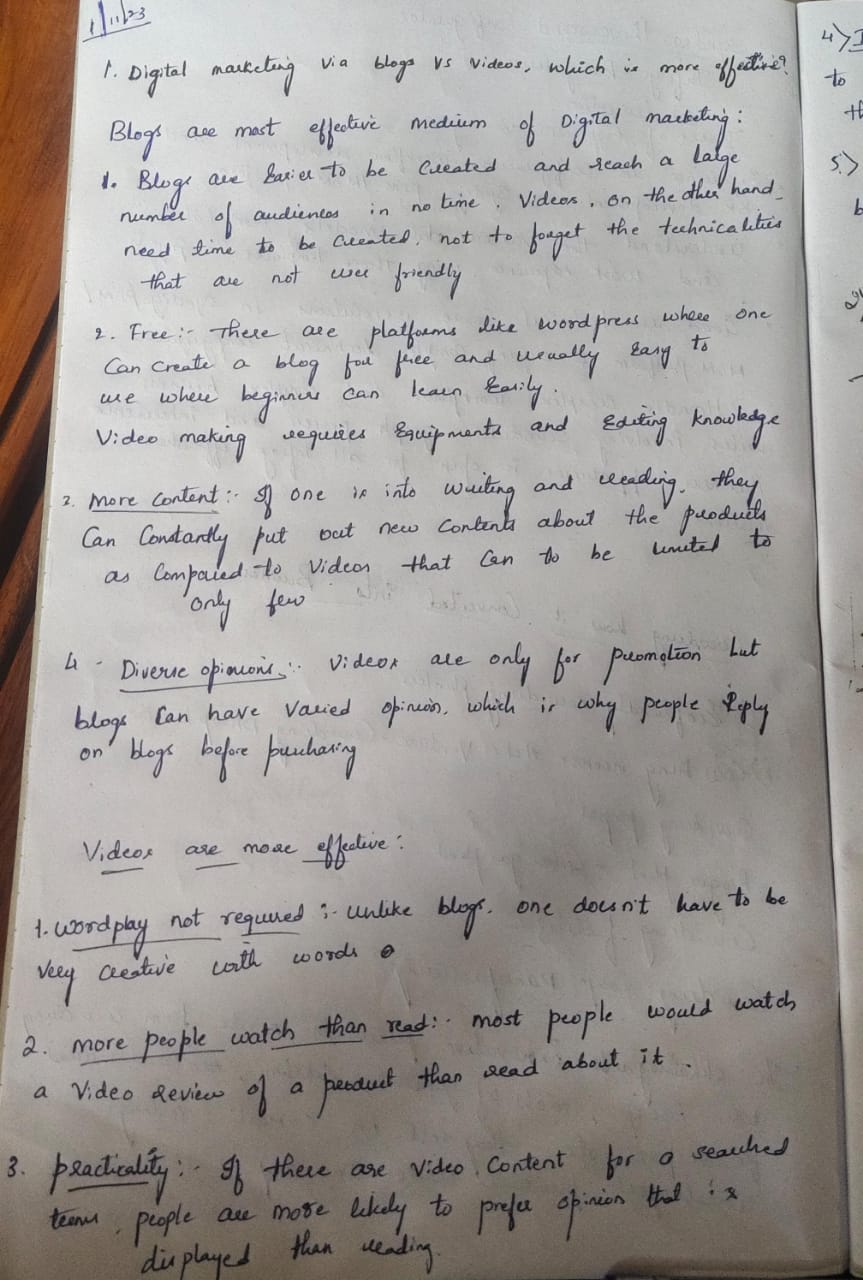 1/11/23
1. Digital marketing via blogs vs videos, which is more effective?
Blogs are most effective medium of Digital marketing :
1. Blogs are Easier to be Created and reach a large
number of audiences in no time. Videos, on the other hand
need time to be created, not to forget the technicalities
that are not user friendly
2. Free :- There are platforms like wordpress where one
Can create a blog for free and usually Easy to
use where beginners can learn Easily.
Video making requires Equipments and Editing knowledge
3. More Content :- If one is into writing and reading, they
Can Constantly put out new Contents about the products
as Compared to Videos that Can to be limited to
only few
4 - Diverse opinions :- Videos are only for promotion but
blogs Can have Varied opinion, which is why people Reply
on blogs before purchasing
Videos are more effective :
1. wordplay not required :- unlike blogs, one doesn't have to be
very creative with words
2. more people watch than read :- most people would watch
a Video Review of a product than read about it.
3. practicality :- If there are Video Content for a searched
term, people are more likely to prefer opinion that is
displayed than reading.
4>
to
th
5>
b